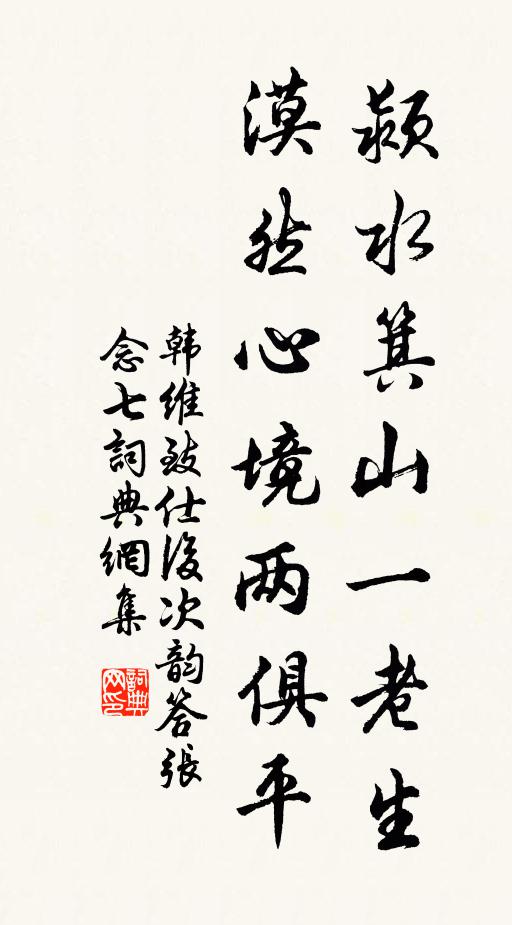 颍水箕山一老生
漠然心境两俱平
韩维致仕後次韵答張
念七詞典網集
詞典网印